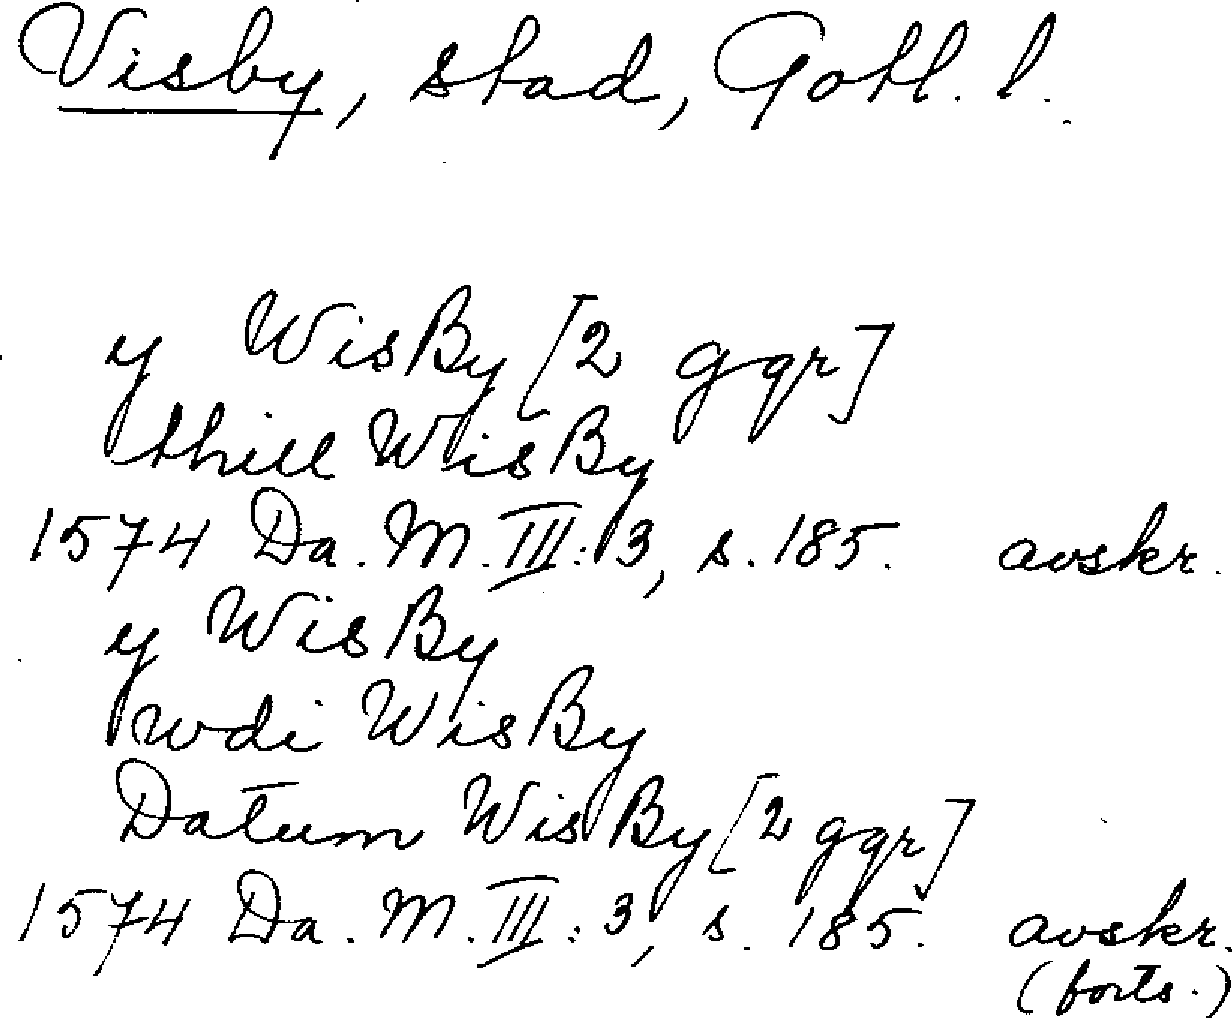 Visby, stad, Gotl. l.
y WisBy [2 ggr]
thill WisBy
1574 Da. M. III: 3, s. 185. avskr.
y WisBy
wdi WisBy
Datum WisBy [2 ggr]
1574 Da. M. III: 3, s. 185. avskr.
(forts.)